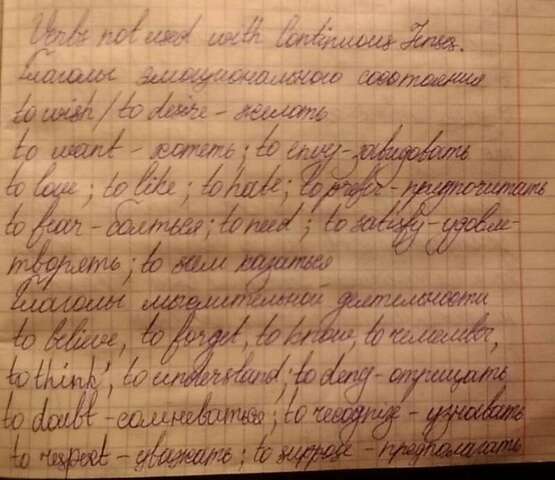 Verbs not used with Continuous Tenses.
Глаголы эмоционального состояния
to wish / to desire - желать
to want - хотеть; to envy - завидовать
to love; to like; to hate; to prefer - предпочитать
to fear - бояться; to need; to satisfy - удовле-
творять; to seem казаться
Глаголы мыслительной деятельности
to believe, to forget, to know, to remember,
to think; to understand; to deny - отрицать
to doubt - сомневаться; to recognize - узнавать
to respect - уважать; to suppose - предполагать